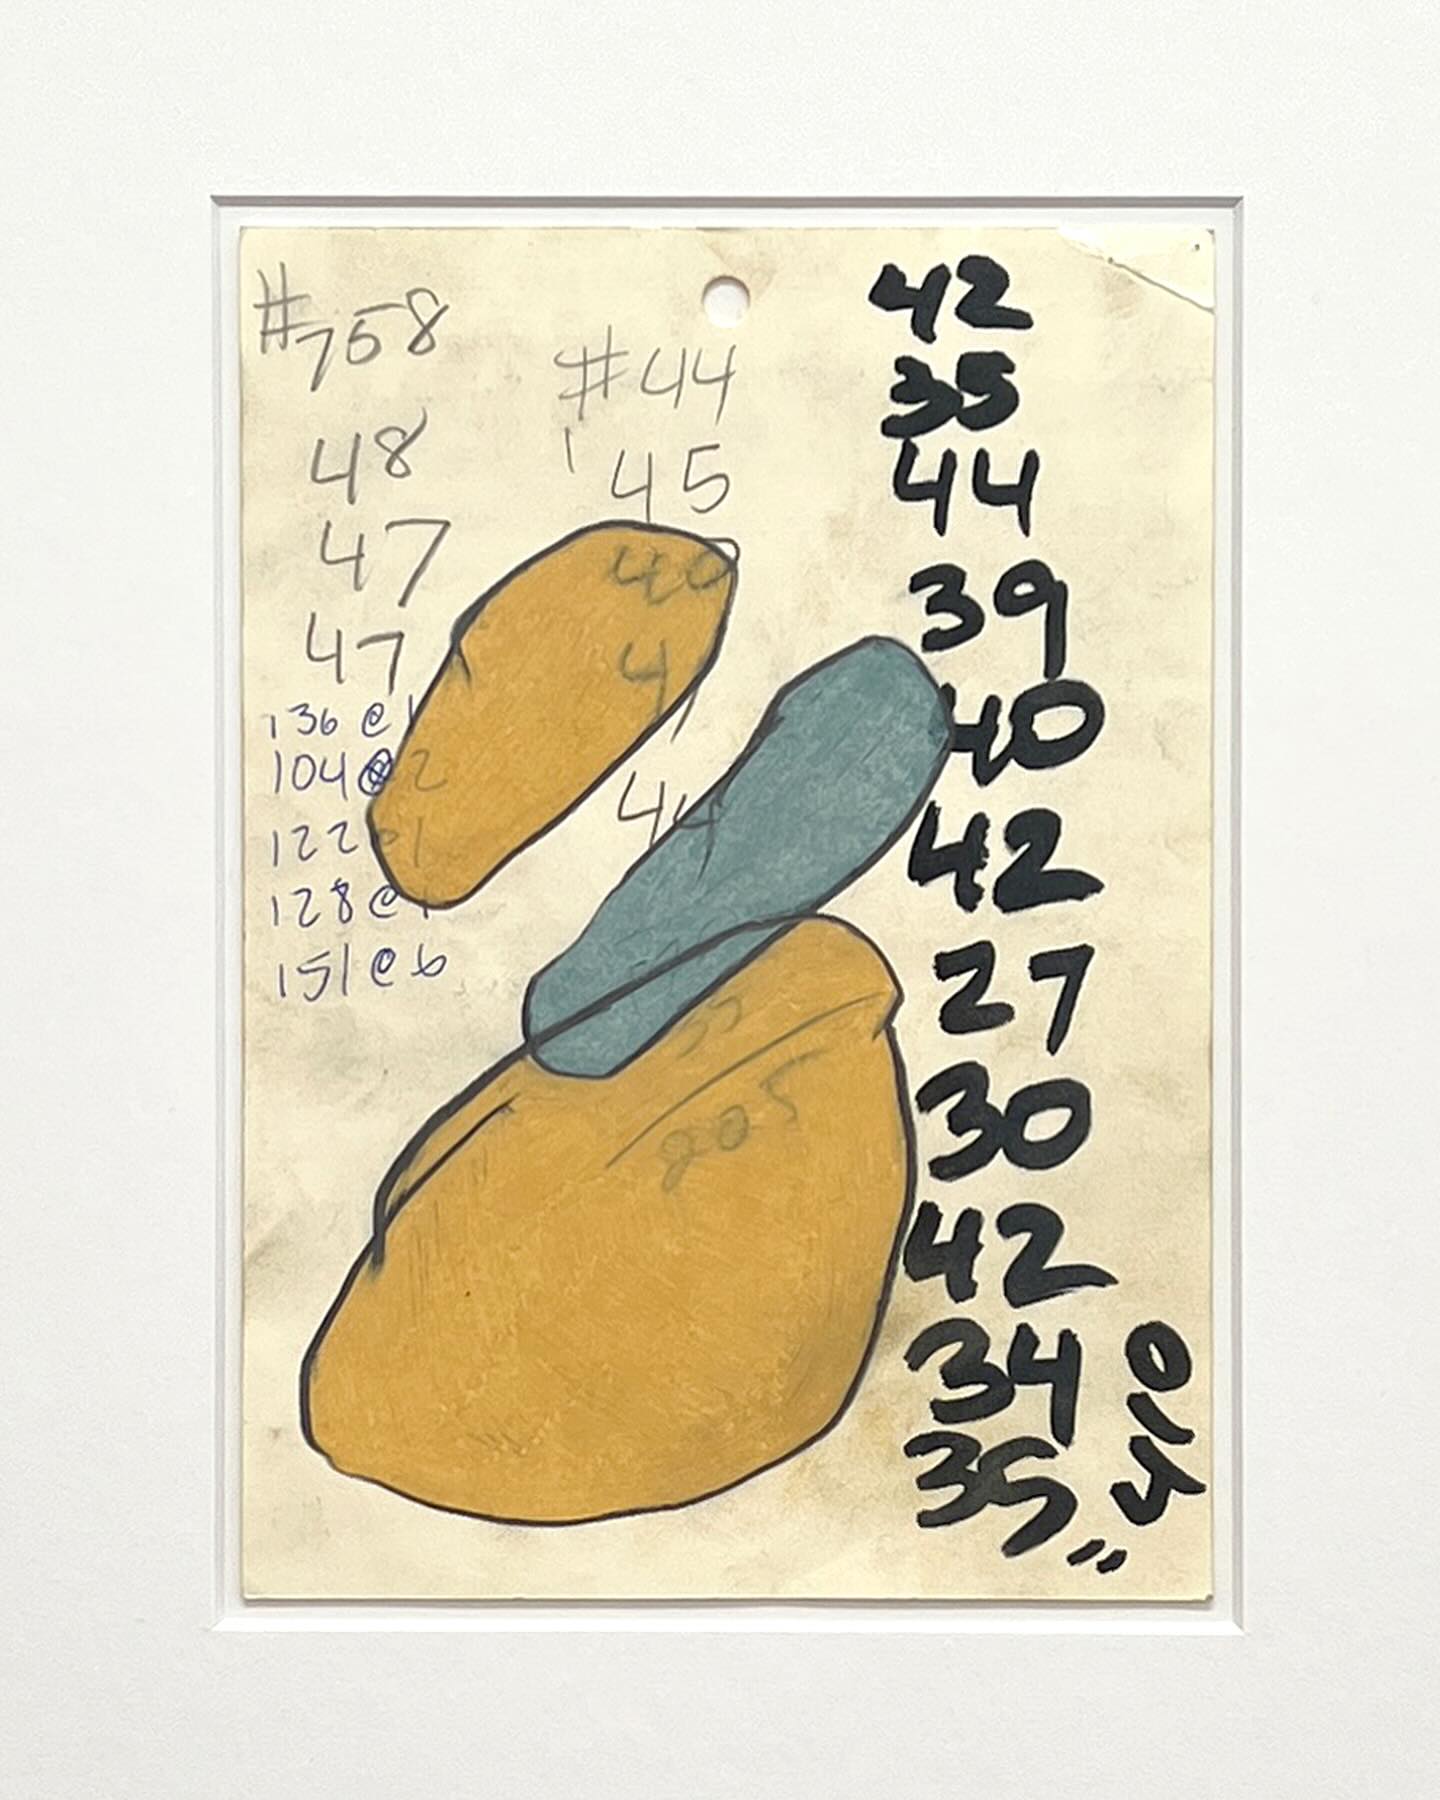 #758
48
47
47
136 @ 1
104 @ 2
122 @ 1
128 @ 1
151 @ 6
#44
45
40
44
805
42
35
44
39
40
42
27
30
42
34
35"